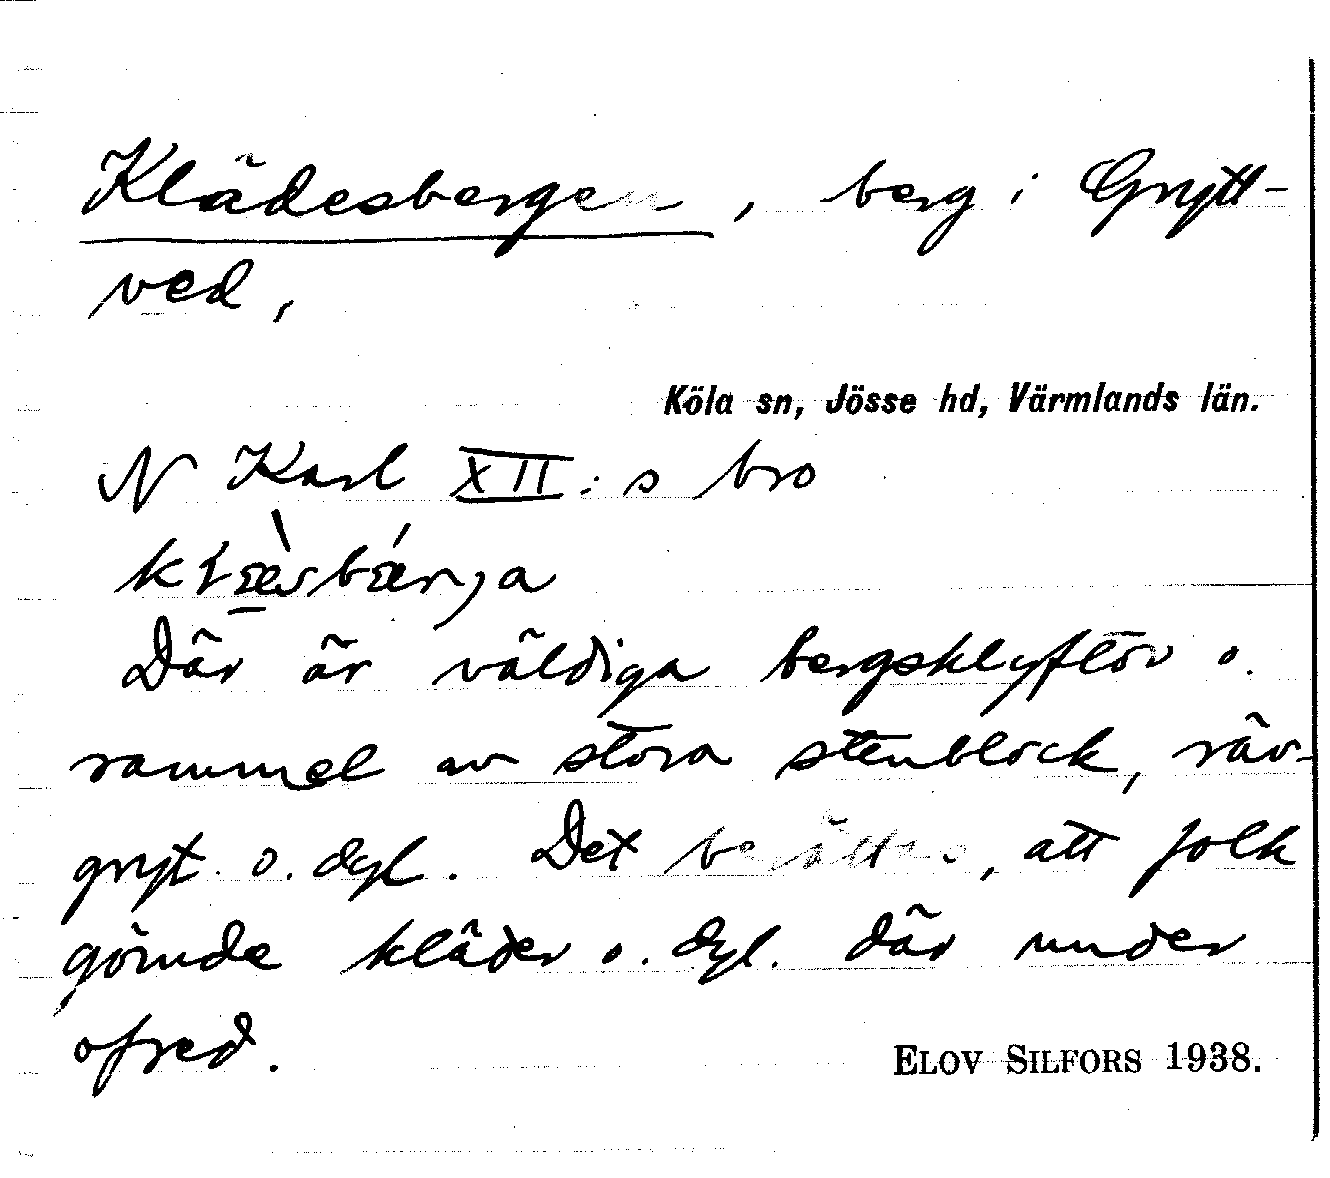 Klädesbergen, berg i Grytt-
ved,
Köla sn, Jösse hd, Värmlands län.
N Karl XII:s bro
Där är väldiga bergsklyftor o.
rammel av stora stenblock, räv-
gryt o. dyl. Det berättas, att folk
gömde kläder o. dyl. där under
ofred.
ELOV SILFORS 1938.